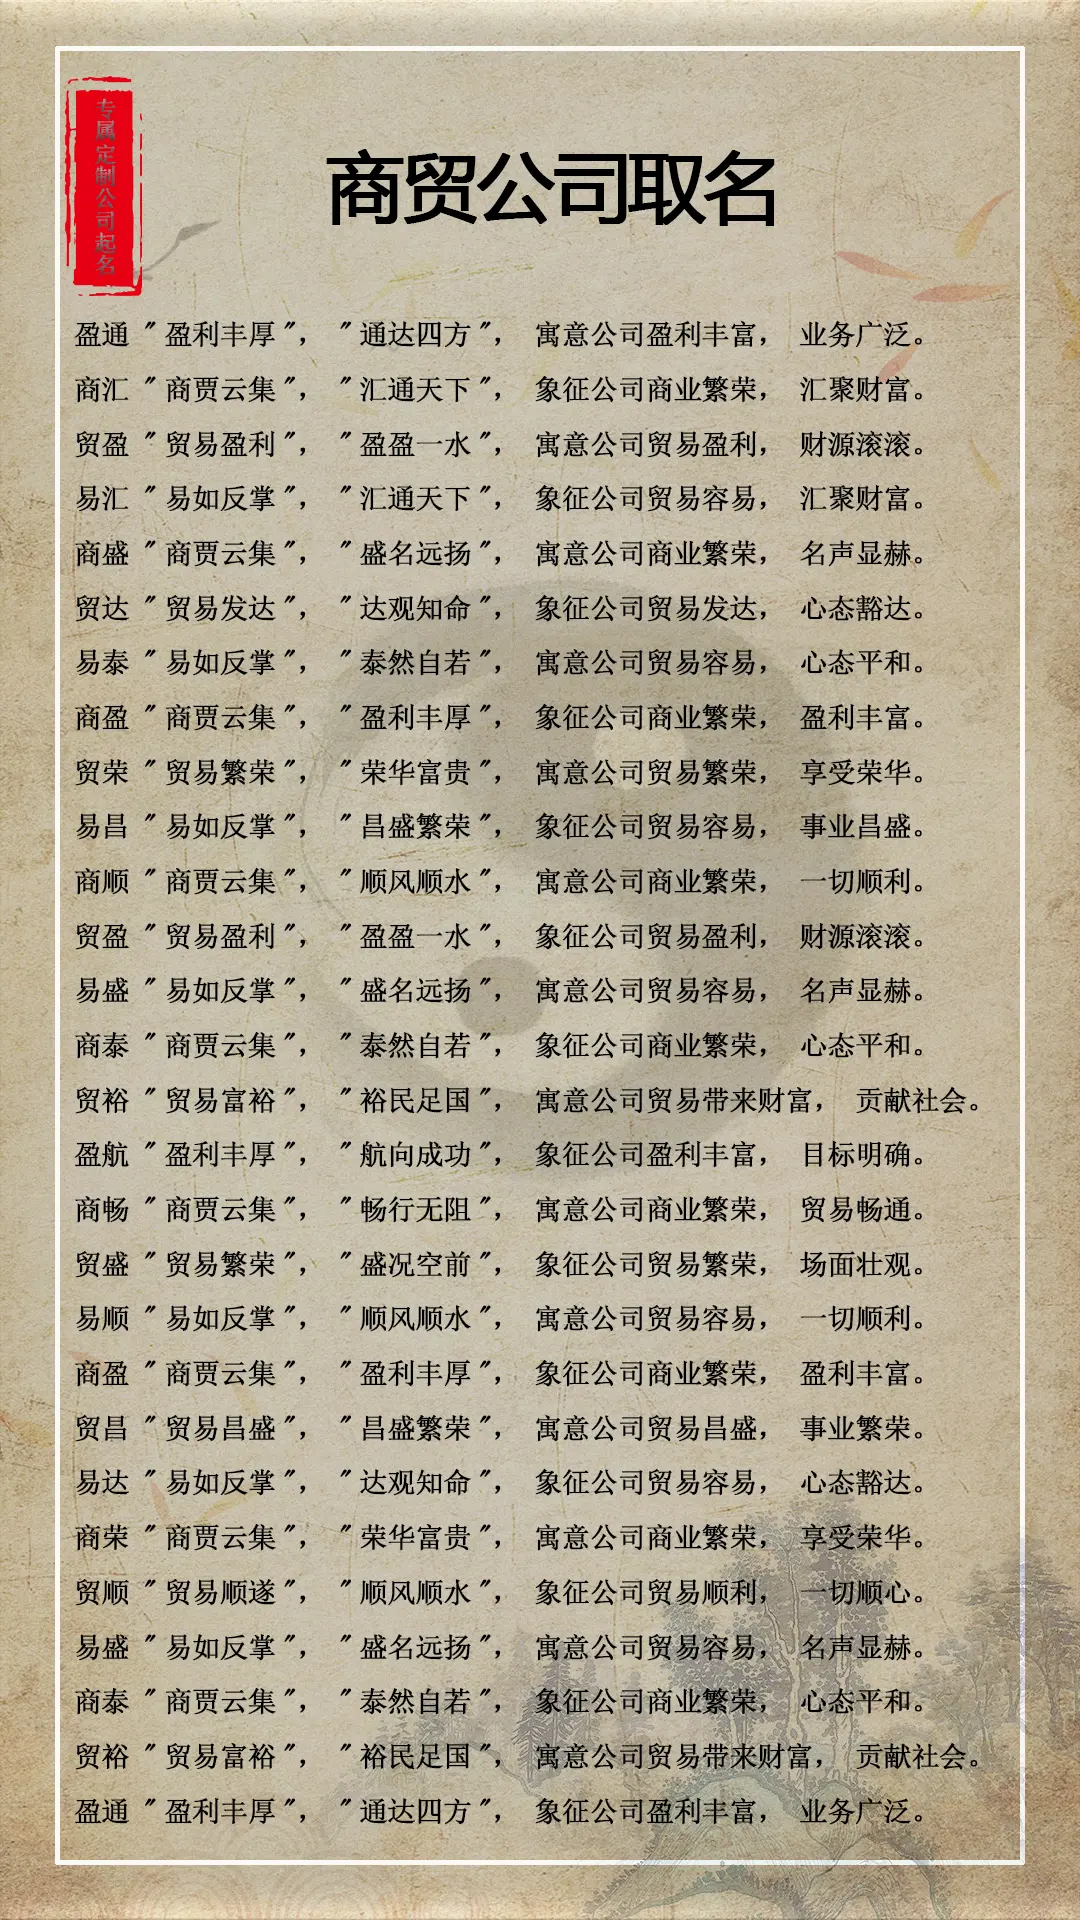 专属定制公司起名
商贸公司取名
盈通 "盈利丰厚", "通达四方", 寓意公司盈利丰富, 业务广泛。
商汇 "商贾云集", "汇通天下", 象征公司商业繁荣, 汇聚财富。
贸盈 "贸易盈利", "盈盈一水", 寓意公司贸易盈利, 财源滚滚。
易汇 "易如反掌", "汇通天下", 象征公司贸易容易, 汇聚财富。
商盛 "商贾云集", "盛名远扬", 寓意公司商业繁荣, 名声显赫。
贸达 "贸易发达", "达观知命", 象征公司贸易发达, 心态豁达。
易泰 "易如反掌", "泰然自若", 寓意公司贸易容易, 心态平和。
商盈 "商贾云集", "盈利丰厚", 象征公司商业繁荣, 盈利丰富。
贸荣 "贸易繁荣", "荣华富贵", 寓意公司贸易繁荣, 享受荣华。
易昌 "易如反掌", "昌盛繁荣", 象征公司贸易容易, 事业昌盛。
商顺 "商贾云集", "顺风顺水", 寓意公司商业繁荣, 一切顺利。
贸盈 "贸易盈利", "盈盈一水", 象征公司贸易盈利, 财源滚滚。
易盛 "易如反掌", "盛名远扬", 寓意公司贸易容易, 名声显赫。
商泰 "商贾云集", "泰然自若", 象征公司商业繁荣, 心态平和。
贸裕 "贸易富裕", "裕民足国", 寓意公司贸易带来财富, 贡献社会。
盈航 "盈利丰厚", "航向成功", 象征公司盈利丰富, 目标明确。
商畅 "商贾云集", "畅行无阻", 寓意公司商业繁荣, 贸易畅通。
贸盛 "贸易繁荣", "盛况空前", 象征公司贸易繁荣, 场面壮观。
易顺 "易如反掌", "顺风顺水", 寓意公司贸易容易, 一切顺利。
商盈 "商贾云集", "盈利丰厚", 象征公司商业繁荣, 盈利丰富。
贸昌 "贸易昌盛", "昌盛繁荣", 寓意公司贸易昌盛, 事业繁荣。
易达 "易如反掌", "达观知命", 象征公司贸易容易, 心态豁达。
商荣 "商贾云集", "荣华富贵", 寓意公司商业繁荣, 享受荣华。
贸顺 "贸易顺遂", "顺风顺水", 象征公司贸易顺利, 一切顺心。
易盛 "易如反掌", "盛名远扬", 寓意公司贸易容易, 名声显赫。
商泰 "商贾云集", "泰然自若", 象征公司商业繁荣, 心态平和。
贸裕 "贸易富裕", "裕民足国", 寓意公司贸易带来财富, 贡献社会。
盈通 "盈利丰厚", "通达四方", 象征公司盈利丰富, 业务广泛。